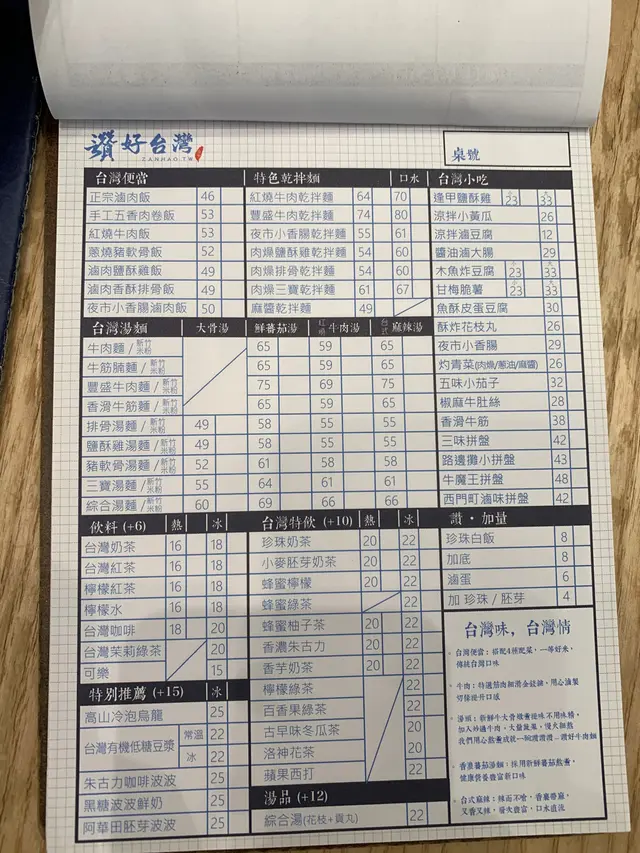 讚好台灣
ZANHAO.TW
桌號
台灣便當
正宗滷肉飯 46
手工五香肉卷飯 53
紅燒牛肉飯 53
蔥燒豬軟骨飯 52
滷肉鹽酥雞飯 49
滷肉香酥排骨飯 49
夜市小香腸滷肉飯 50
特色乾拌麵 口水
紅燒牛肉乾拌麵 64 70
豐盛牛肉乾拌麵 74 80
夜市小香腸乾拌麵 55 61
肉燥鹽酥雞乾拌麵 54 60
肉燥排骨乾拌麵 54 60
肉燥三寶乾拌麵 61 67
麻醬乾拌麵 49
台灣小吃
逢甲鹽酥雞 小23 大33
涼拌小黃瓜 26
涼拌滷豆腐 12
醬油滷大腸 29
木魚炸豆腐 小23 大33
甘梅脆薯 小23 大33
魚酥皮蛋豆腐 30
酥炸花枝丸 26
夜市小香腸 29
灼青菜(肉燥/蔥油/麻醬) 26
五味小茄子 32
椒麻牛肚絲 28
香滑牛筋 38
三味拼盤 42
路邊攤小拼盤 43
牛魔王拼盤 48
西門町滷味拼盤 42
台灣湯麵 大骨湯 鮮蕃茄湯 紅燒牛肉湯 台式麻辣湯
牛肉麵/新竹米粉 65 59 65
牛筋腩麵/新竹米粉 65 59 65
豐盛牛肉麵/新竹米粉 75 69 75
香滑牛筋麵/新竹米粉 65 59 65
排骨湯麵/新竹米粉 49 58 55 55
鹽酥雞湯麵/新竹米粉 49 58 55 55
豬軟骨湯麵/新竹米粉 52 61 58 58
三寶湯麵/新竹米粉 55 64 61 61
綜合湯麵/新竹米粉 60 69 66 66
飲料 (+6) 熱 冰
台灣奶茶 16 18
台灣紅茶 16 18
檸檬紅茶 16 18
檸檬水 16 18
台灣咖啡 18 20
台灣茉莉綠茶 20
可樂 15
特別推薦 (+15) 冰
高山冷泡烏龍 25
台灣有機低糖豆漿 常溫 22
冰 22
朱古力咖啡波波 25
黑糖波波鮮奶 25
阿華田胚芽波波 25
台灣特飲 (+10) 熱 冰
珍珠奶茶 20 22
小麥胚芽奶茶 20 22
蜂蜜檸檬 20 22
蜂蜜綠茶 22
蜂蜜柚子茶 20 22
香濃朱古力 20 22
香芋奶茶 20 22
檸檬綠茶 22
百香果綠茶 22
古早味冬瓜茶 22
洛神花茶 22
蘋果西打 22
湯品 (+12)
綜合湯(花枝+貢丸) 22
讚·加量
珍珠白飯 8
加底 8
滷蛋 6
加 珍珠/胚芽 4
台灣味，台灣情
台灣便當：搭配4種配菜，一等好米，
傳統台灣口味
牛肉：特選筋肉細滑金錢𦟌，用心滷製
切條提升口感
湯頭：新鮮牛大骨燉煮提味不用味精，
加入炒過牛肉，大量蔬菜，慢火細熬
我們用心熬煮成就一碗讚讚讚～讚好牛肉麵
香濃蕃茄湯麵：採用新鮮蕃茄熬煮，
健康營養豐富新口味
台式麻辣：辣而不嗆，香蔥帶麻，
又香又辣，層次豐富，口水直流